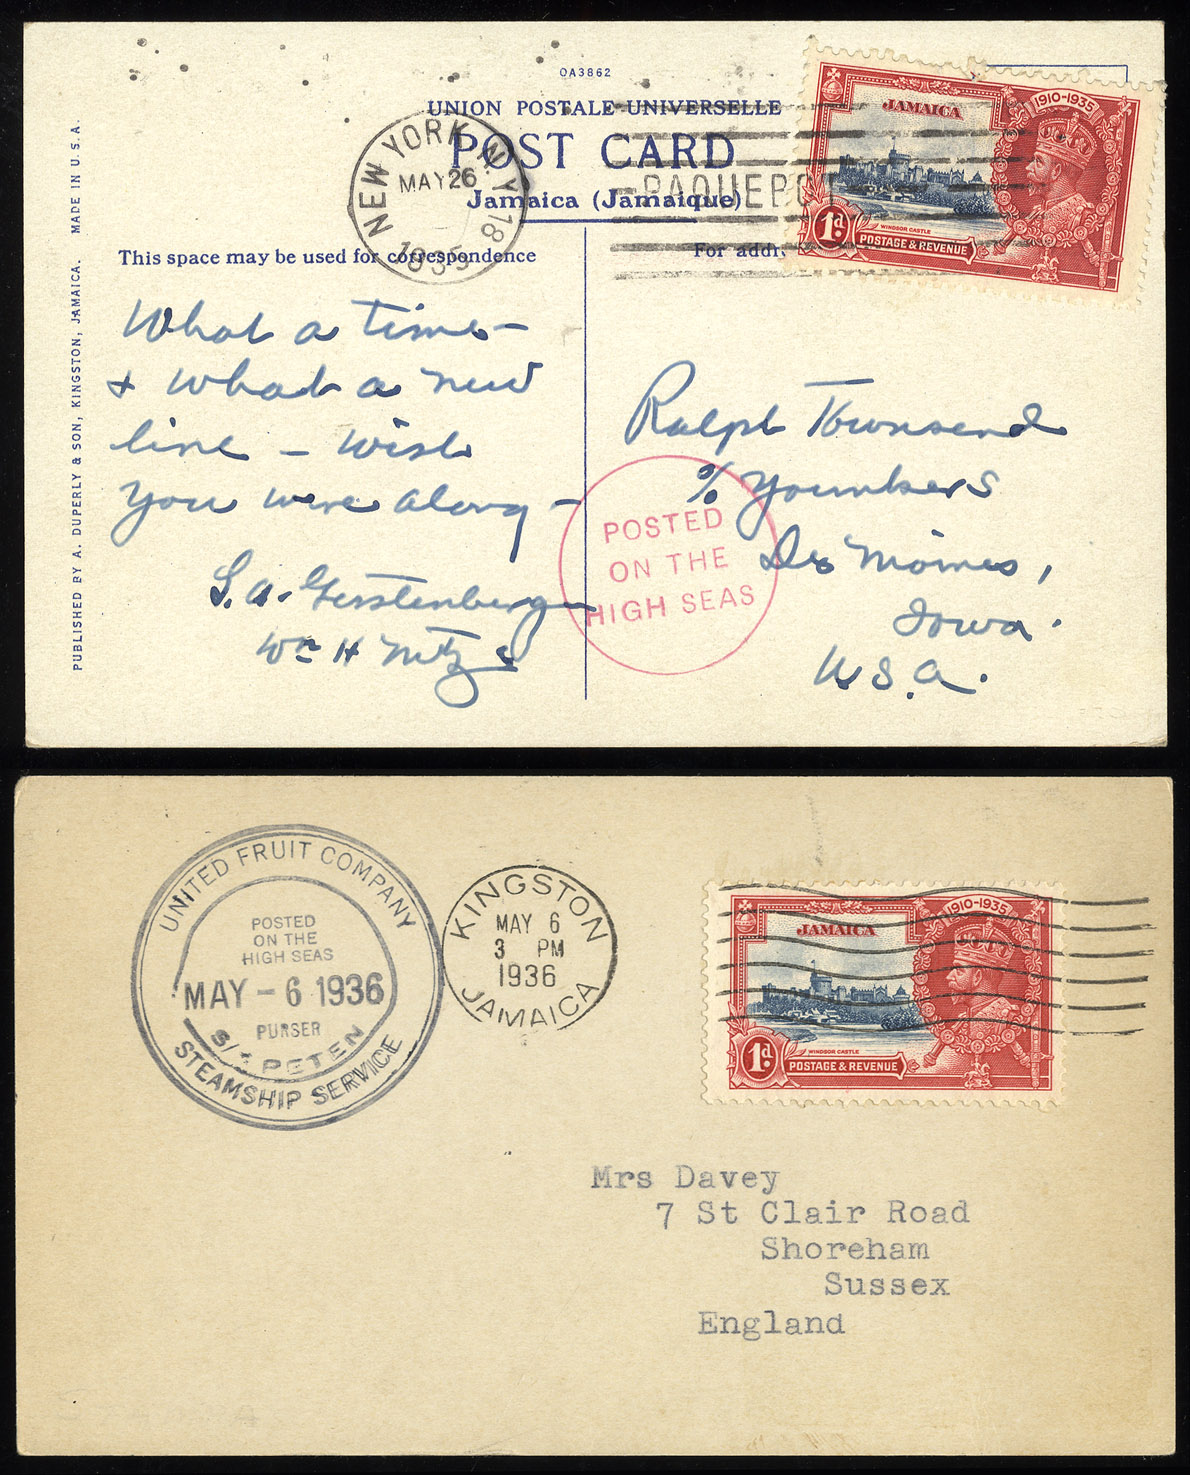 OA3862
UNION POSTALE UNIVERSELLE
POST CARD
Jamaica (Jamaique)
This space may be used for correspondence
For addr
PUBLISHED BY A. DUPERLY & SON, KINGSTON, JAMAICA. MADE IN U.S.A.
NEW YORK N.Y. 18
MAY 26
1935
PAQUEBOT
JAMAICA
1910-1935
WINDSOR CASTLE
1d.
POSTAGE & REVENUE
What a time –
+ what a new
line – wish
you were along –
S. A. Gerstenberger
Wm H
Ralph Townsend
% Younkers
Des Moines,
Iowa.
U.S.A.
POSTED
ON THE
HIGH SEAS
UNITED FRUIT COMPANY
POSTED
ON THE
HIGH SEAS
MAY - 6 1936
PURSER
PETEN
STEAMSHIP SERVICE
KINGSTON
MAY 6
3 PM
1936
JAMAICA
JAMAICA
1910-1935
WINDSOR CASTLE
1d.
POSTAGE & REVENUE
Mrs Davey
7 St Clair Road
Shoreham
Sussex
England